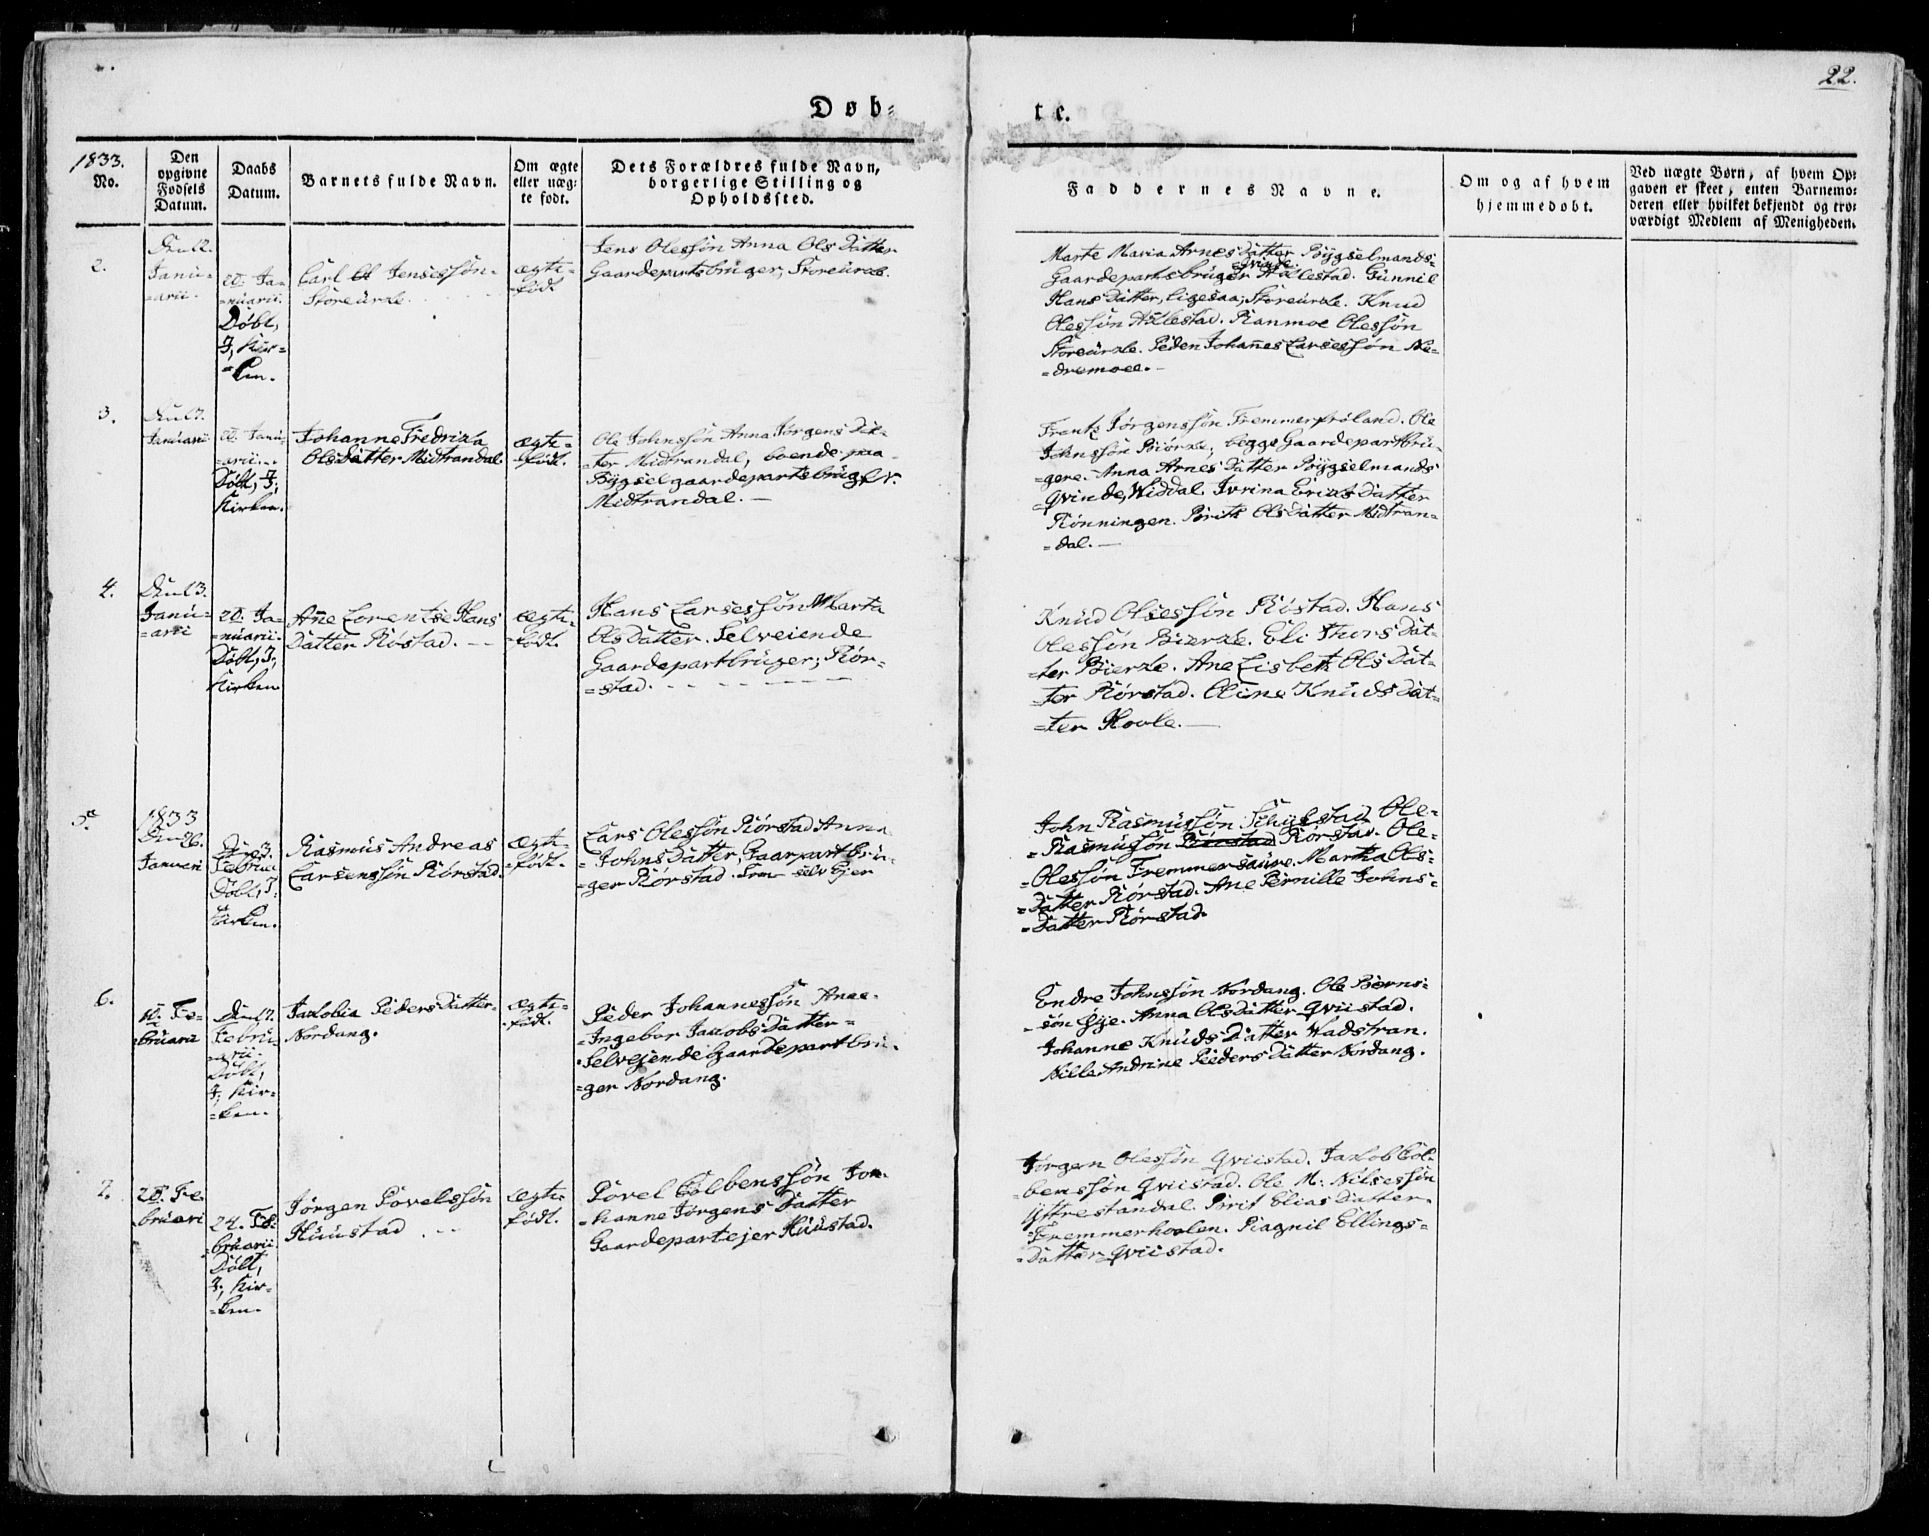 22.
Døb-
te.
1833.
No.
Den
opgivne
Fødsels
Datum.
Daabs
Datum.
Barnets fulde Navn.
Om ægte
eller uæg-
te født.
Dets Forældres fulde Navn,
borgerlige Stilling og
Opholdssted.
Faddernes Navne.
Om og af hvem
hjemmedøbt.
Ved uægte Børn, af hvem Op-
gaven er skeet, enten Barnemo-
deren eller hvilket bekjendt og tro-
værdigt Medlem af Menigheden.
2.
Janu-
=arii.
20. Ja-
=nuarii.
Døbt,
I, Kir=
=ken.
Carl Jensessøn
Storeurke.
ægte-
=født
Jens Olessøn Anna Ols Datter
Gaardepartsbruger, Storeurke.
Marte Maria Arnes Datter Bÿgselmands-
Qvinde.
Gaardepartsbruger Aklestad. Gunnil
Hans Datter, ligesaa, Storeurke. Knud
Olessøn Aklestad. Ranmoe Olessøn
Storeurke. Peder Johannes Larsessøn Ne-
=dremoee.
3.
Januarii
20. Janu-
=arii.
Døbt, I,
Kirken.
Johanne Fredrika
Olsdatter Midtrandal
ægte-
=født.
Ole Johnssøn Anna Jørgens Dat-
ter Midtrandal, boende paa
Bÿgselgaardepartsbruger.
Midtrandal.
Frantz Jørgenssøn Fremmerfroland. Ole
Johnssøn Biørke, begge Gaardepartbru-
=gere. Anna Arnes Datter Bÿgselmands
Qvinde, Widdal. Ivrina Erics Datter
Rønningen. Birith Olsdatter Midtran-
=dal.
4.
Janu-
=arii
20. Ja-
=nuarii.
Døbt, I,
Kirken
Ane Lorentse Hans
Datter Røstad.
ægte-
=født.
Hans Larsessøn Marta
Olsdatter. Selveiende
Gaardepartbruger, Rør-
=stad.
Knud Olsessøn Røstad. Hans
Olessøn Bierke. Eli Thors Dat-
=ter Bierke. Ane Lisbeth Ols Dat-
=ter Rørstad. Oline Knuds Dat-
=ter Hovle.
5.
1833
Januari
3.
Februa
Døbt, I
Kirken.
Rasmus Andreas
Larsenssøn Rørstad.
ægte-
=født.
Lars Olessøn Rørstad Anna
=Johns Datter, Gaarpartbru-
=ger Rørstad. Som selv Ejer
John Rasmussøn Skylstad Ole-
=Rasmussøn Rørstad Rørstad. Ole-
=Olessøn Fremmersaure. Martha Ols=
=Datter Rørstad. Ane Pernille Johns=
=Datter Rørstad.
6.
10. Fe-
=bruarii
Febru-
=arii.
Døbt,
I, Kir-
=ken.
Jakobia Peders Datter
Nordang.
ægte-
=født.
Peder Johannessøn Anne-
=Ingebor Jacobs Datter=
=Selvejende Gaardepartbru-
=ger Nordang.
Endre Johnssøn Nordang. Ole Børns-
=søn Øÿe. Anna Olsdatter Qviistad.
Johanne Knuds Datter Wadstran.
Nille Andrine Peeders Datter Nordang.
7.
20. Fe
bruari
24. Fe-
=bruarii
Døbt,
I, Kir-
=ken.
Jørgen Povelssøn
Huustad
ægte-
født.
Povel Colbenssøn Jo-
=hanne Jørgens Datter
Gaardepartejer Huustad.
Jørgen Olessøn Qviistad. Jakob Col-
=benssøn Qviistad. Ole M: Nilsessøn
Ÿttrestandal. Pirit Elias Datter-
=Fremmerhovlen. Ragnil Ellings=
=Datter Qviistad.